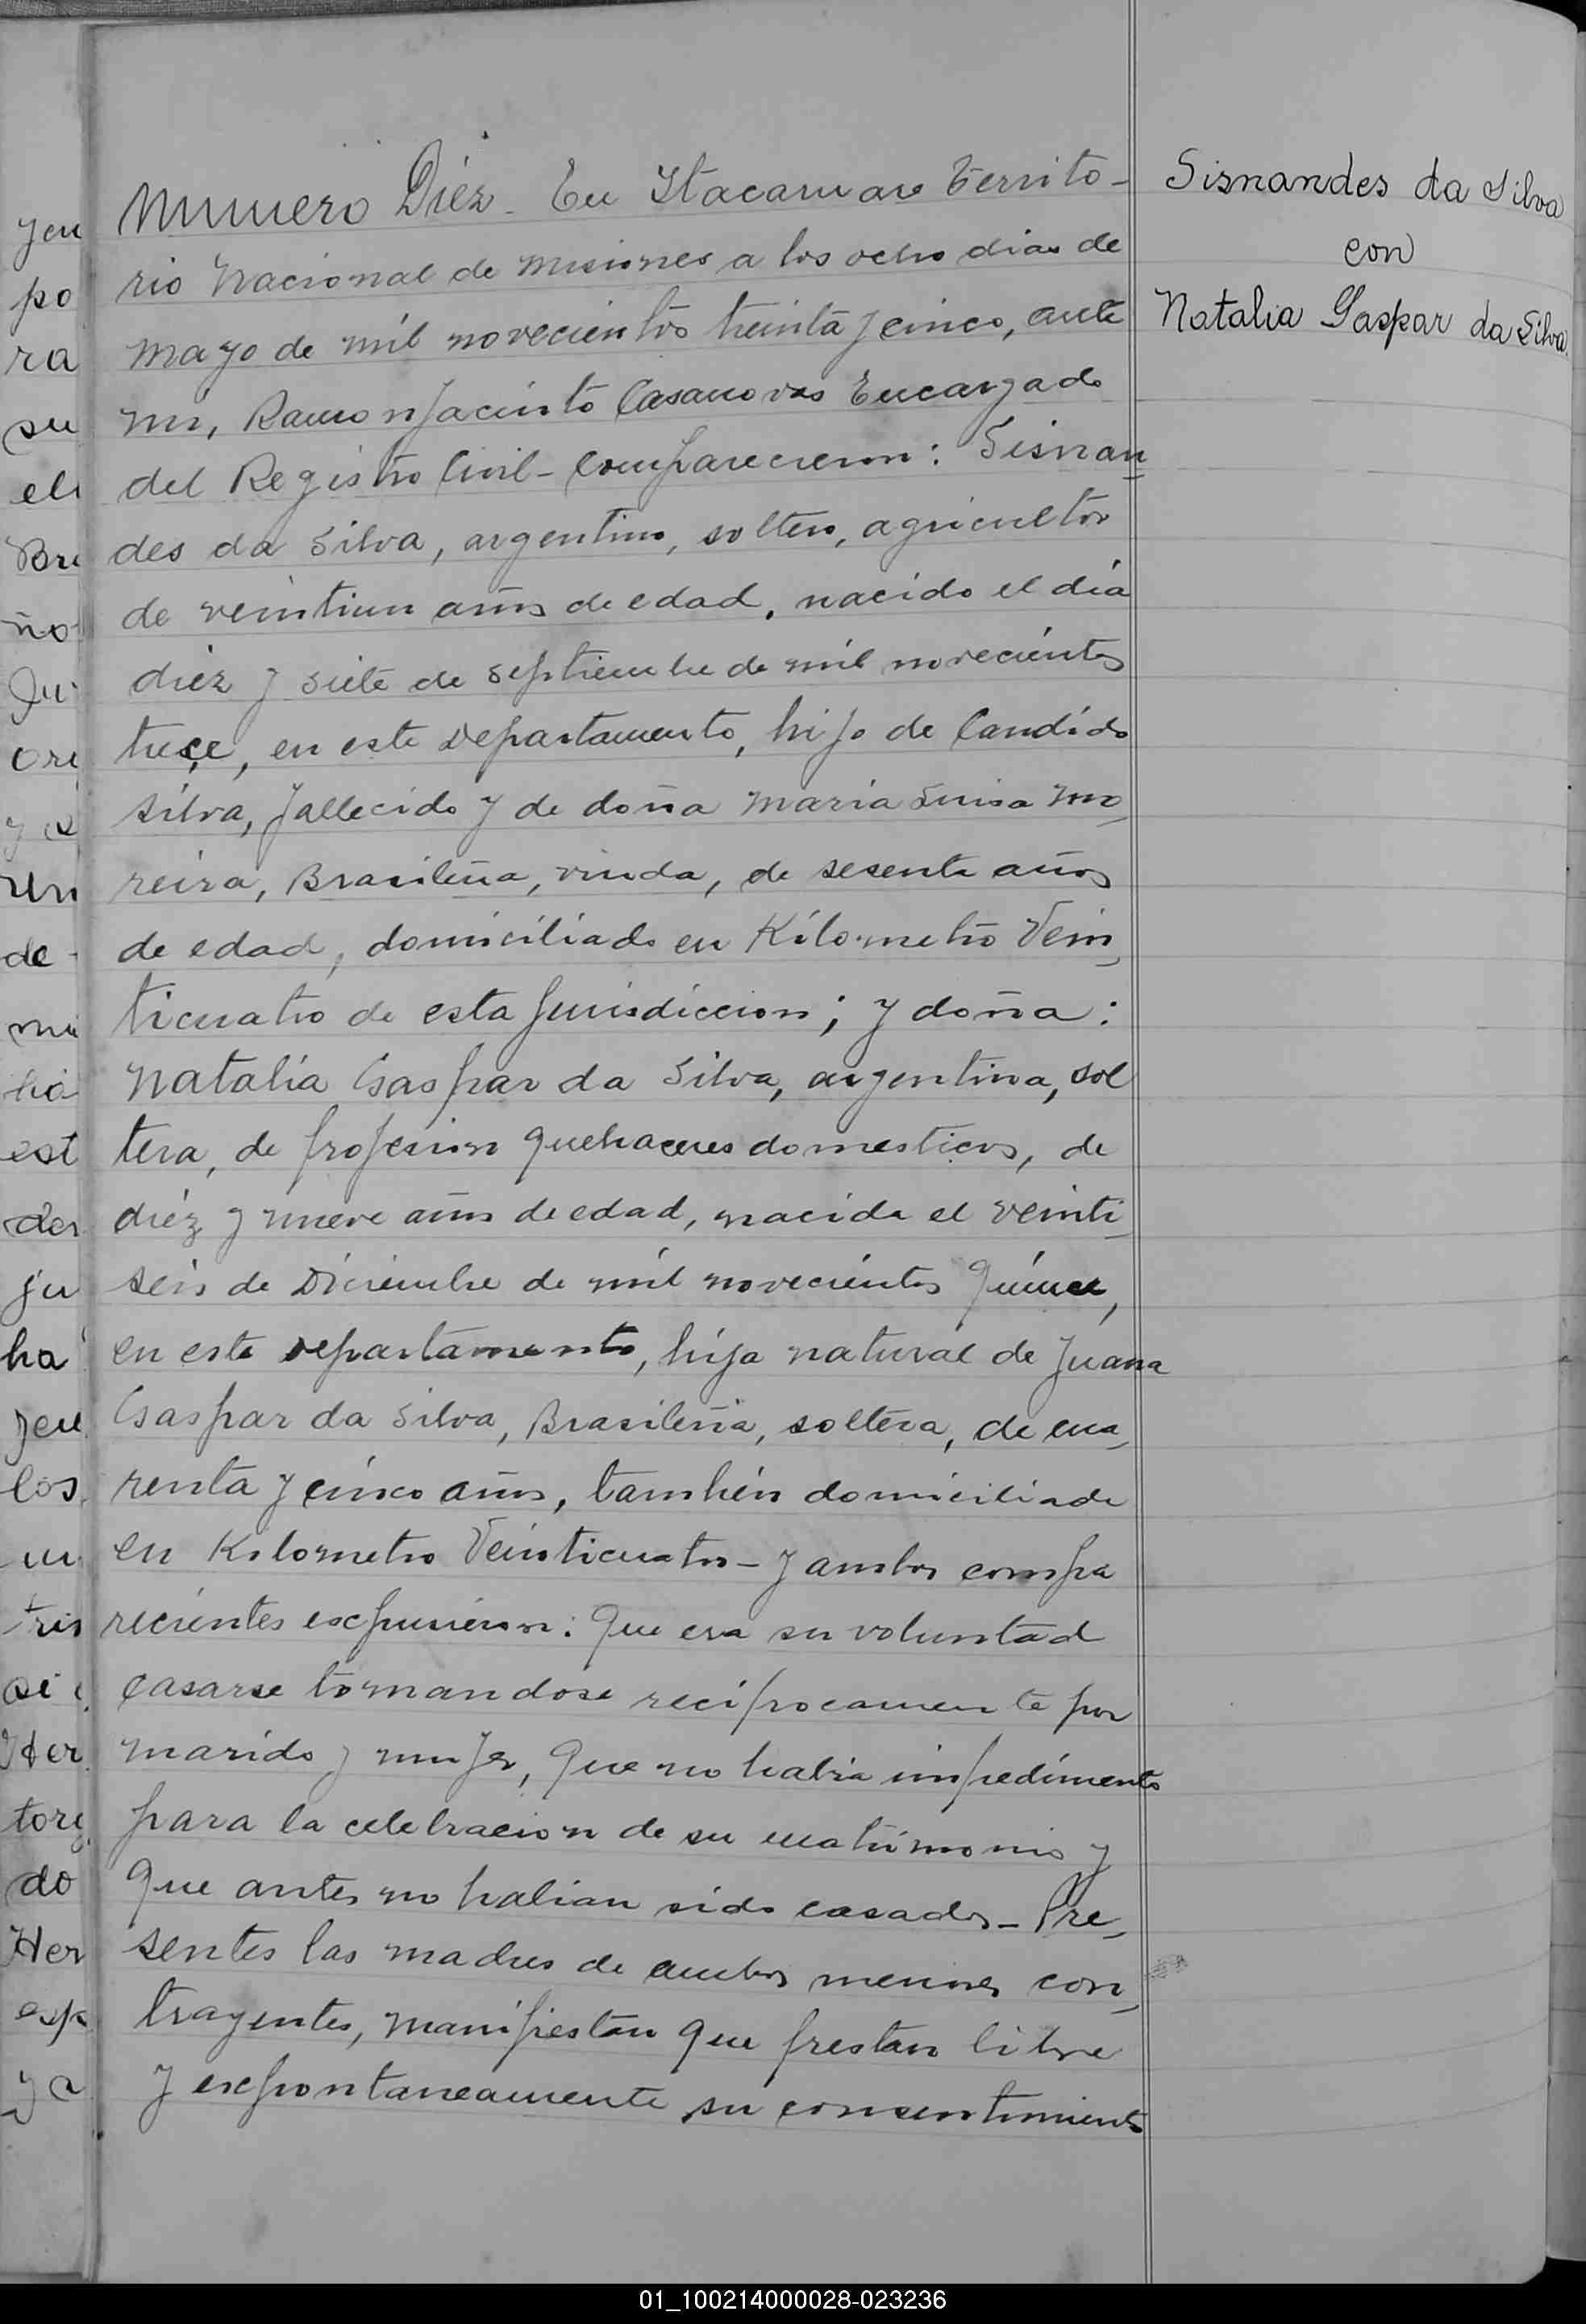 Numero Diéz. En Itacaruare Territo-
rio Nacional de Misiones a los ocho dias de
Mayo de mil novecientos treinta y cinco, ante
mi, Ramon Jacinto Casanovas Encargado
del Registro Civil - Comparecieron: Sisnan-
des da Silva, argentino, soltero, agricultor
de veintiun años de edad, nacido el día
diéz y siete de septiembre de mil novecientos
trece, en este Departamento, hijo de Candido
Silva, fallecido y de doña Maria Luisa Mo-
reira, Brasileña, viuda, de sesenta años
de edad, domiciliado en Kilometro Vein-
ticuatro de esta jurisdiccion; y doña:
Natalia Gaspar da Silva, argentina, sol
tera, de profesion quehaceres domesticos, de
diéz y nueve años de edad, nacida el veinti-
seis de Diciembre de mil novecientos quince,
en este departamento, hija natural de Juana
Gaspar da Silva, Brasileña, soltera, de cua-
renta y cinco años, tambien domiciliada
en Kilometro Veinticuatro - y ambos compa
recientes expusieron: Que era su voluntad
casarse tomandose reciprocamente por
marido y mujer, que no habia impedimento
para la celebracion de su matrimonio y
que antes no habian sido casados - Pre-
sentes las madres de ambos menores con-
trayentes, manifiestan que prestan libre
y expontaneamente su consentimiento
Sisnandes da Silva
con
Natalia Gaspar da Silva.
yen
po
ra
su
el
Bri
ño
Ju
ori
y
un
de
mi
lia
est
der
ju
ha
yen
los
un
tris
si
Her
torg
do
Her
esp
y a
01_100214000028-023236